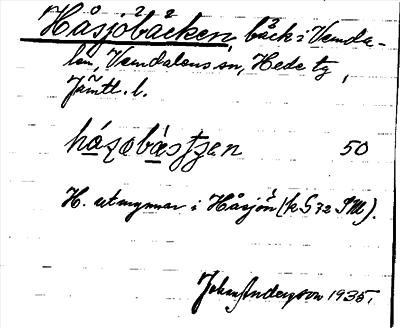 Håsjöbäcken, bäck i Vemda-
len, Vemdalens sn, Hede tg,
Jämtl. l.
50
H. utmynnar i Håsjön (k S 72 SM).
Johan Anderson 1935.